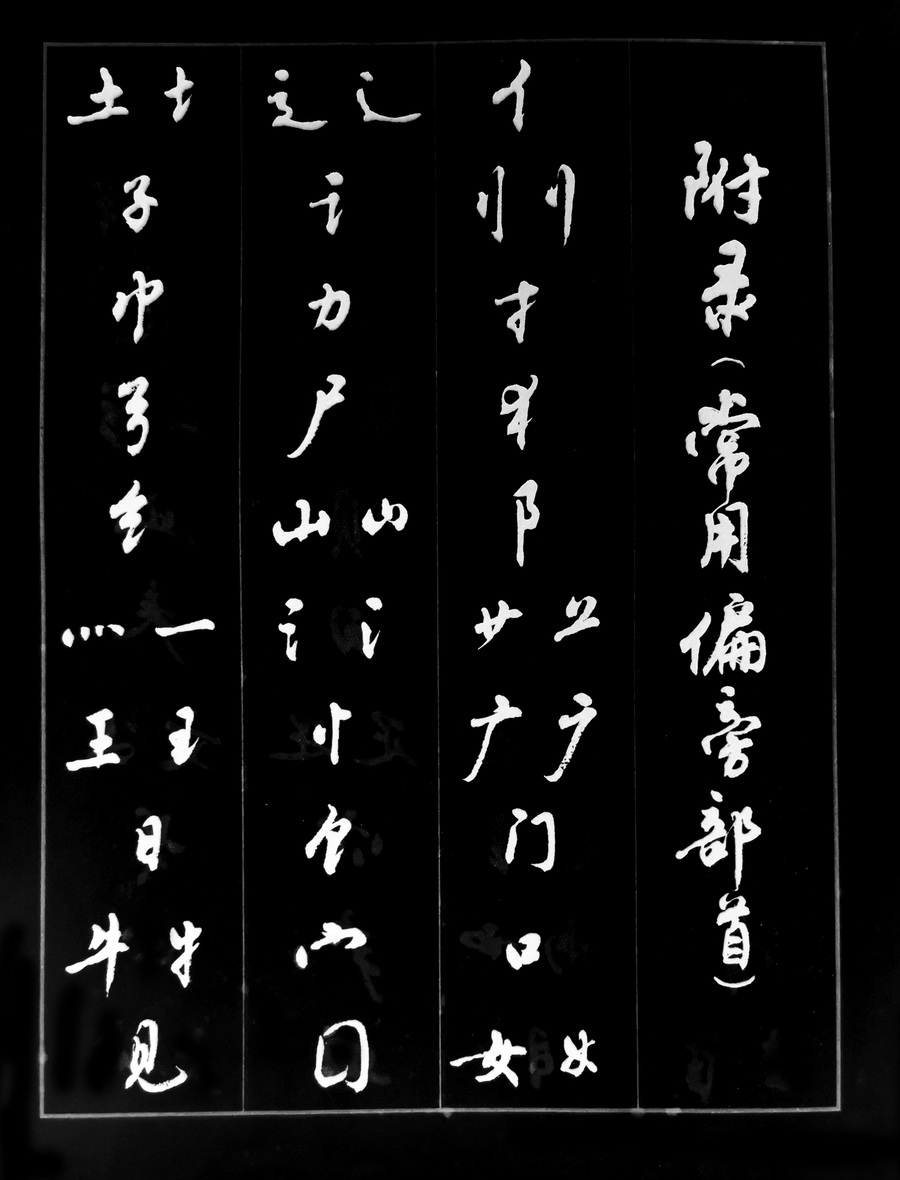 附录（常用偏旁部首）
亻
刂 刂
扌
犭
阝
艹
广 广
门
口
女 女
辶 辶
讠
力
尸
山 山
氵 氵
忄
饣
宀
囗
土 土
子
巾
弓
纟
灬 一
王 王
日
牛 牛
见